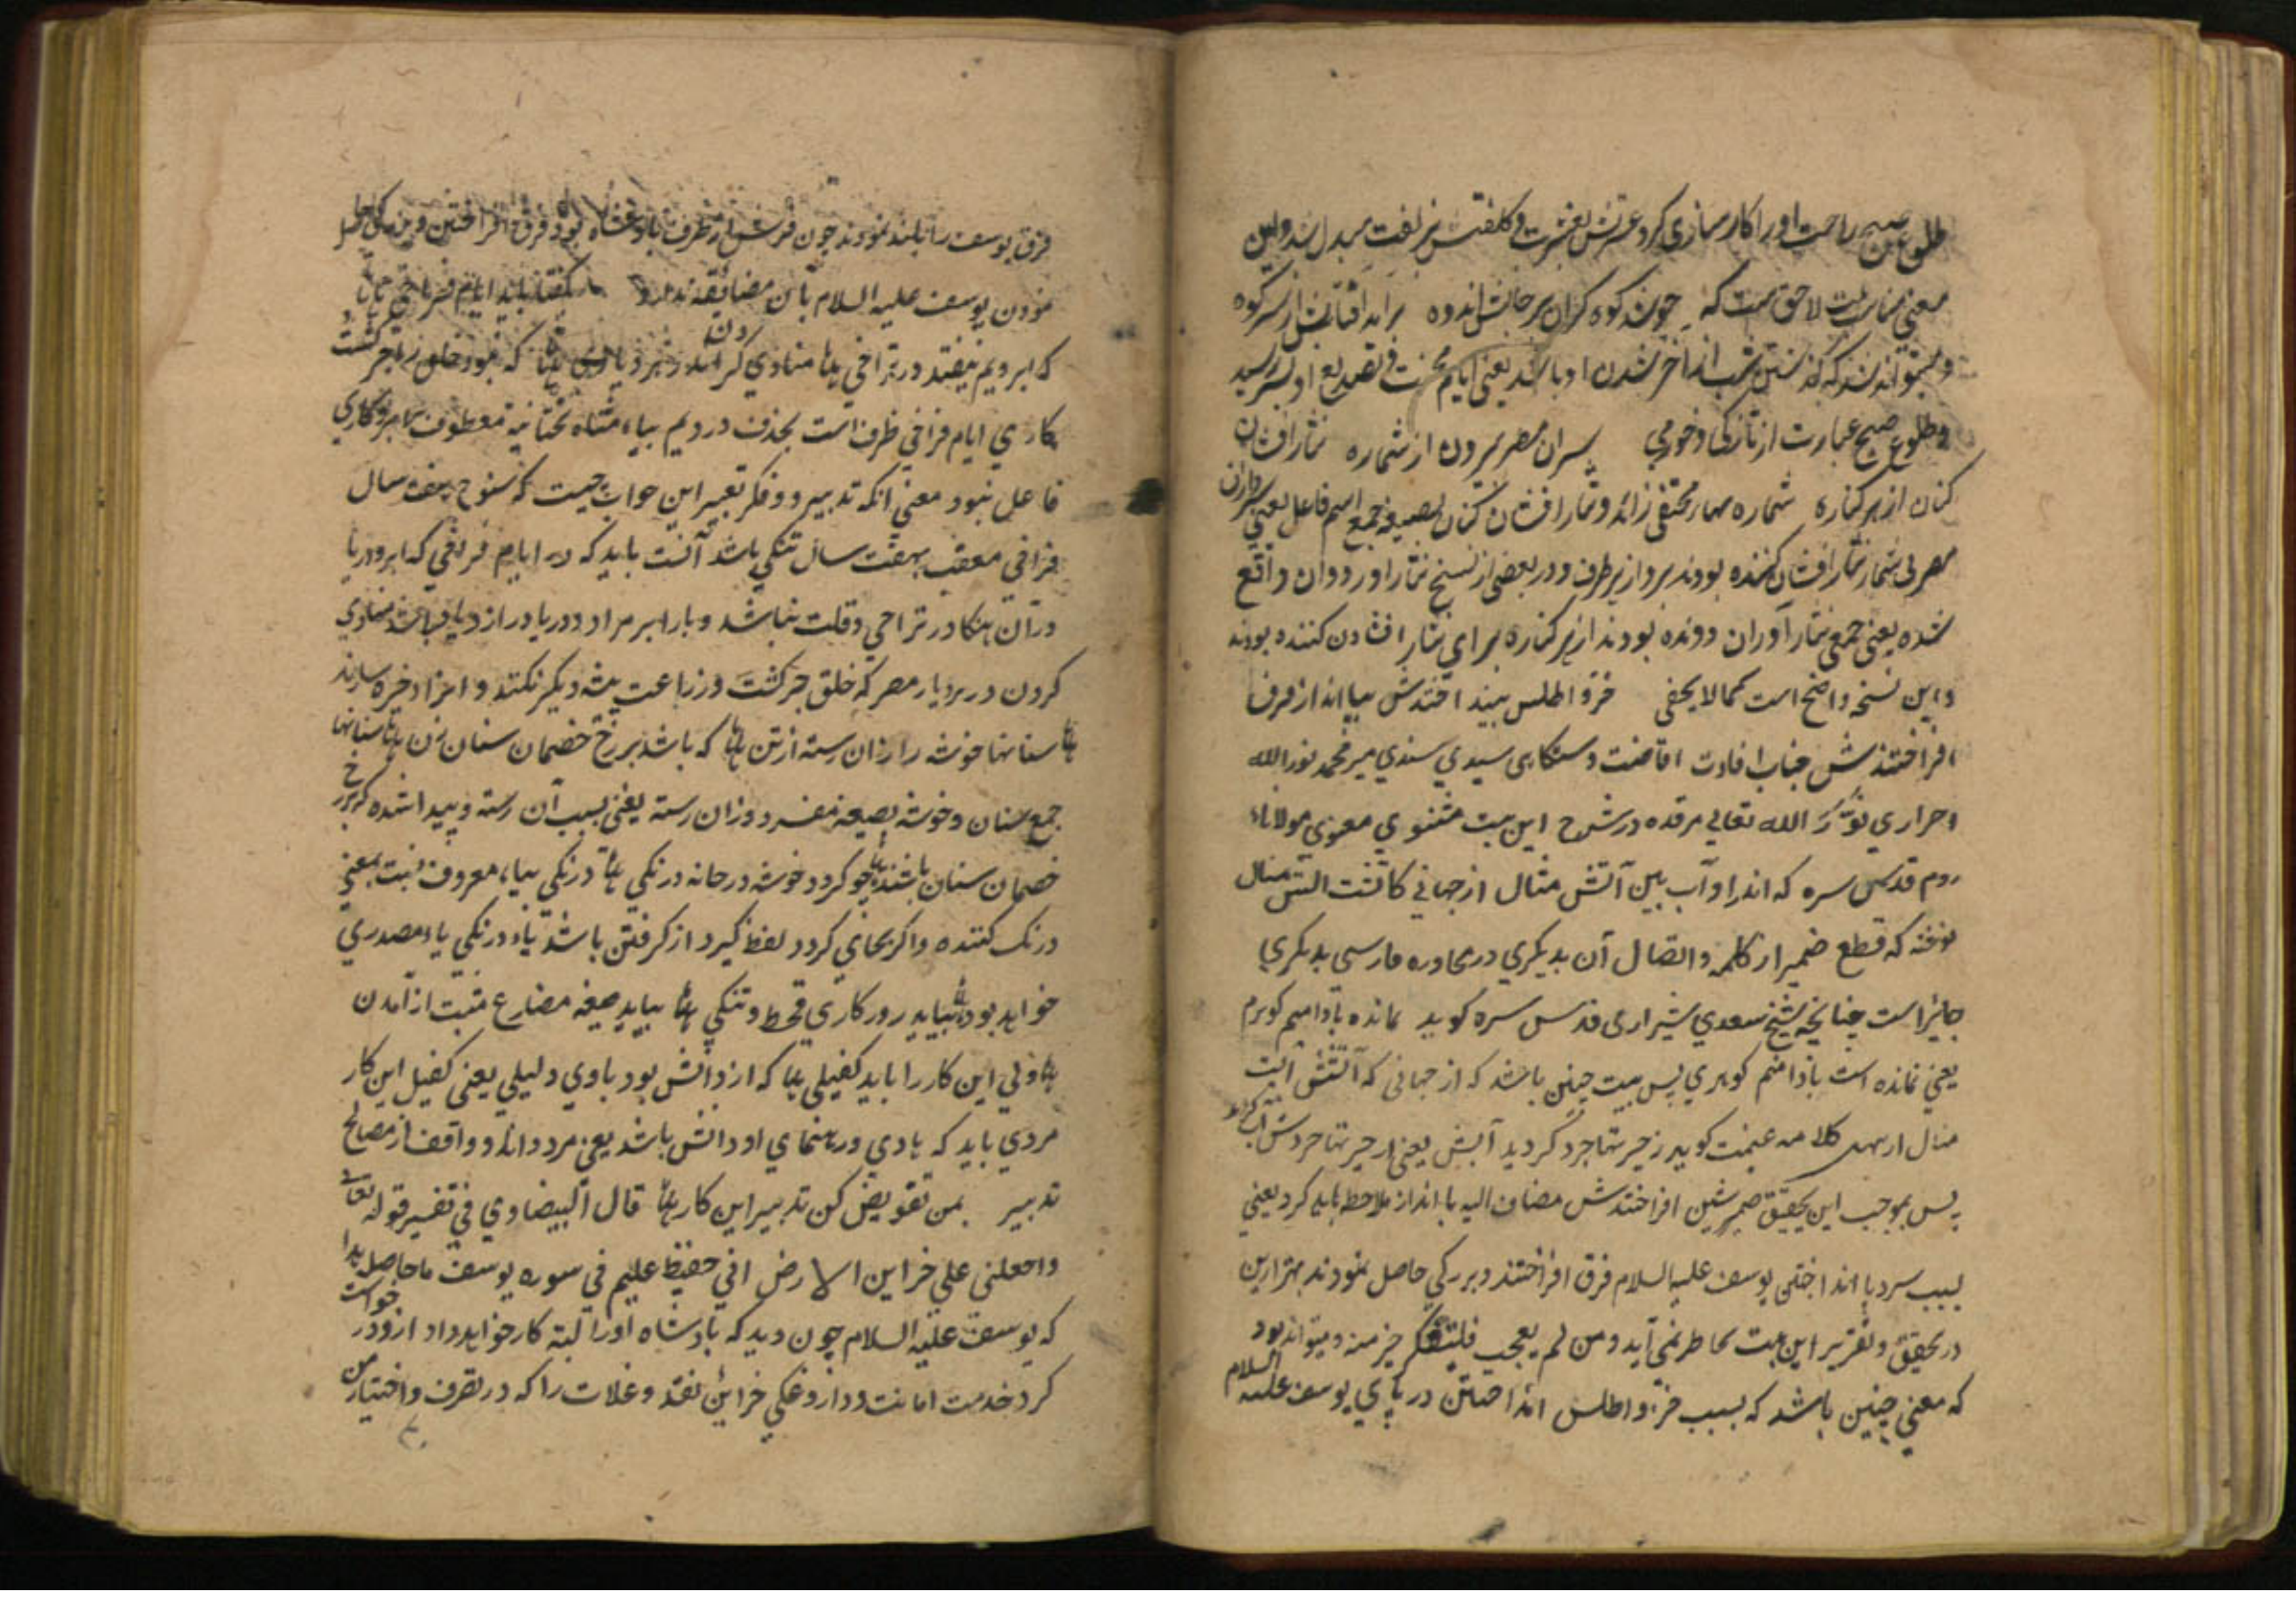 طلوع صبح راحت او را کارسازی کرد عسرتش بعشرت و کلفتش بزلفت مبدل شد و این
معنی مناسبت لاحق ست که چو شد کوه کران بر جانش اندوه برآمد آفتابش از سر کوه
و میتواند شد که گذشتن شب از آخر شدن او باشد یعنی ایام محنت و تصدیع او بسر رسید
و طلوع صبح عبارت از تازکی و خورمی بسران مصر بیرون از شماره نثار افشان
کنان از هر کناره شماره بهاء مختفی زائد و نثار افشان کنان بصیغه جمع اسم فاعل یعنی سرداران
مصر بی شمار نثار افشان کننده بودند بر و از هر طرف و در بعضی از نسخ نثار آور دوان واقع
شده یعنی جمعی نثار آوران دونده بودند از هر کناره برای نثار افشادن کننده بودند
و این نسخه واضح است کما لا یخفی خز و اطلس بپا انداختندش بپا انداز فرق
افراختندش جناب افادت افاضت دستکاهی سیدی سندی میر محمد نور الله
احراری نوّر الله تعالی مرقده در شرح این بیت مثنوی معنوی مولاناء
روم قدس سره که اندر او آب بین آتش مثال از جهانی کاتشست آبش مثال
نوشته که قطع ضمیر از کلمه و اتصال آن بدیکری در محاوره فارسی بدیکری
جائز است چنانچه شیخ سعدی شیرازی قدس سره کوید نمانده بادامیم کوهرم
یعنی نمانده است بادامنم کوهری پس بیت چنین باشد که از جهانی که آتشش آبست
مثال کلامه غنیمت کوید ز حیرتها جرد گردید آبش یعنی از حیرتها
پس بموجب این تحقیق ضمیر شین افراختندش مضاف الیه پا انداز ملاحظه باید کرد یعنی
بسبب سردپا انداختن یوسف علیه السلام فرق افراختند و بزرکی حاصل نمودند بهتر ازین
در تحقیق و تقریر این بیت بخاطر نمی آید و من لم یعجب فلیتفکر خیر منه و میتواند بود
که معنی چنین باشد که بسبب خز و اطلس انداختن در پای یوسف علیه السلام
فرق یوسف را بلند نمودند چون فرش از طرف بادشاه بود فرق افراختن و بزرکی حاصل
نمودن یوسف علیه السلام باآن مضائقه ندارد بکفتا باید ایام فراخی
که ابر و یم نیفتد در تراخی منادی کردن اندر هر دیاری که نبود خلق را جز کشت
کاری ایام فراخی ظرف است بحذف در و یم بیاء مثناه تحتانیه معطوف بابر و کاری
فاعل نبود معنی آنکه تدبیر و فکر تعبیر این خواب چیست که سنوح هفت سال
فراخی معقب بهفت سال تنکی باشد آنست باید که در ایام فراخی که ابر و دریا
در آن هنکام در تراخی و قلت نباشد و بار ابر مراد و دریا در ازدیاد باشد منادی
کردن در هر دیار مصر که خلق جز کشت و زراعت پیشه دیکر نکنند و انرا ذخیره سازند
سنانها خوشه را زان رسته از تن که باشد بر رخ خصمان سنان زن سنانها
جمع سنان و خوشه بصیغه مفرد و زان رسته یعنی بسبب آن رسته و پیدا شده که بر رخ
خصمان سنان باشند چو کردد خوشه در خانه درنکی درنکی بیاء معروف نسبت بمعنی
درنک کننده و اکر بجای کردد لفظ گیرد از کرفتن باشد یاء درنکی یاء مصدری
خواهد بود بباید روزکاری قحط و تنکی بباید صیغه مضارع مثبت از آمدن
ولی این کار را باید کفیلی که از دانش بود باوی دلیلی یعنی کفیل این کار
مردی باید که هادی و رهنمای او دانش باشد یعنی مرد دانا و واقف از مصالح
تدبیر بمن تفویض کن تدبیر این کار قال البیضاوی فی تفسیر قوله تعالی
واجعلنی علی خزاین الارض انی حفیظ علیم فی سوره یوسف ما حاصله هذا
که یوسف علیه السلام چون دید که بادشاه او را البته کار خواهد داد ازو در خواست
کرد خدمت امانت و داروغکی خزائن نقد و غلات را که در تصرف و اختیار من